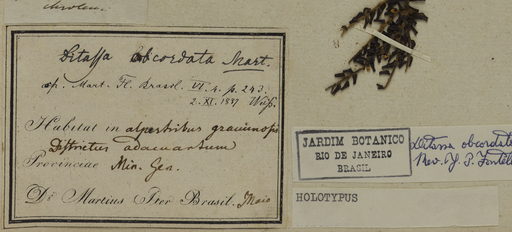 Ditassa obcordata Mart.
ap. Mart. Fl. Brasil. VI. 4. p. 243.
2. XI. 1897
Habitat in alpestribus graminosis
Districtus adamantum
Provinciae Min. Gen.
Dr Martius Iter Brasil. Maio
JARDIM BOTANICO
RIO DE JANEIRO
BRASIL
Ditassa obcordata
Rev. J. P. Fontell
HOLOTYPUS